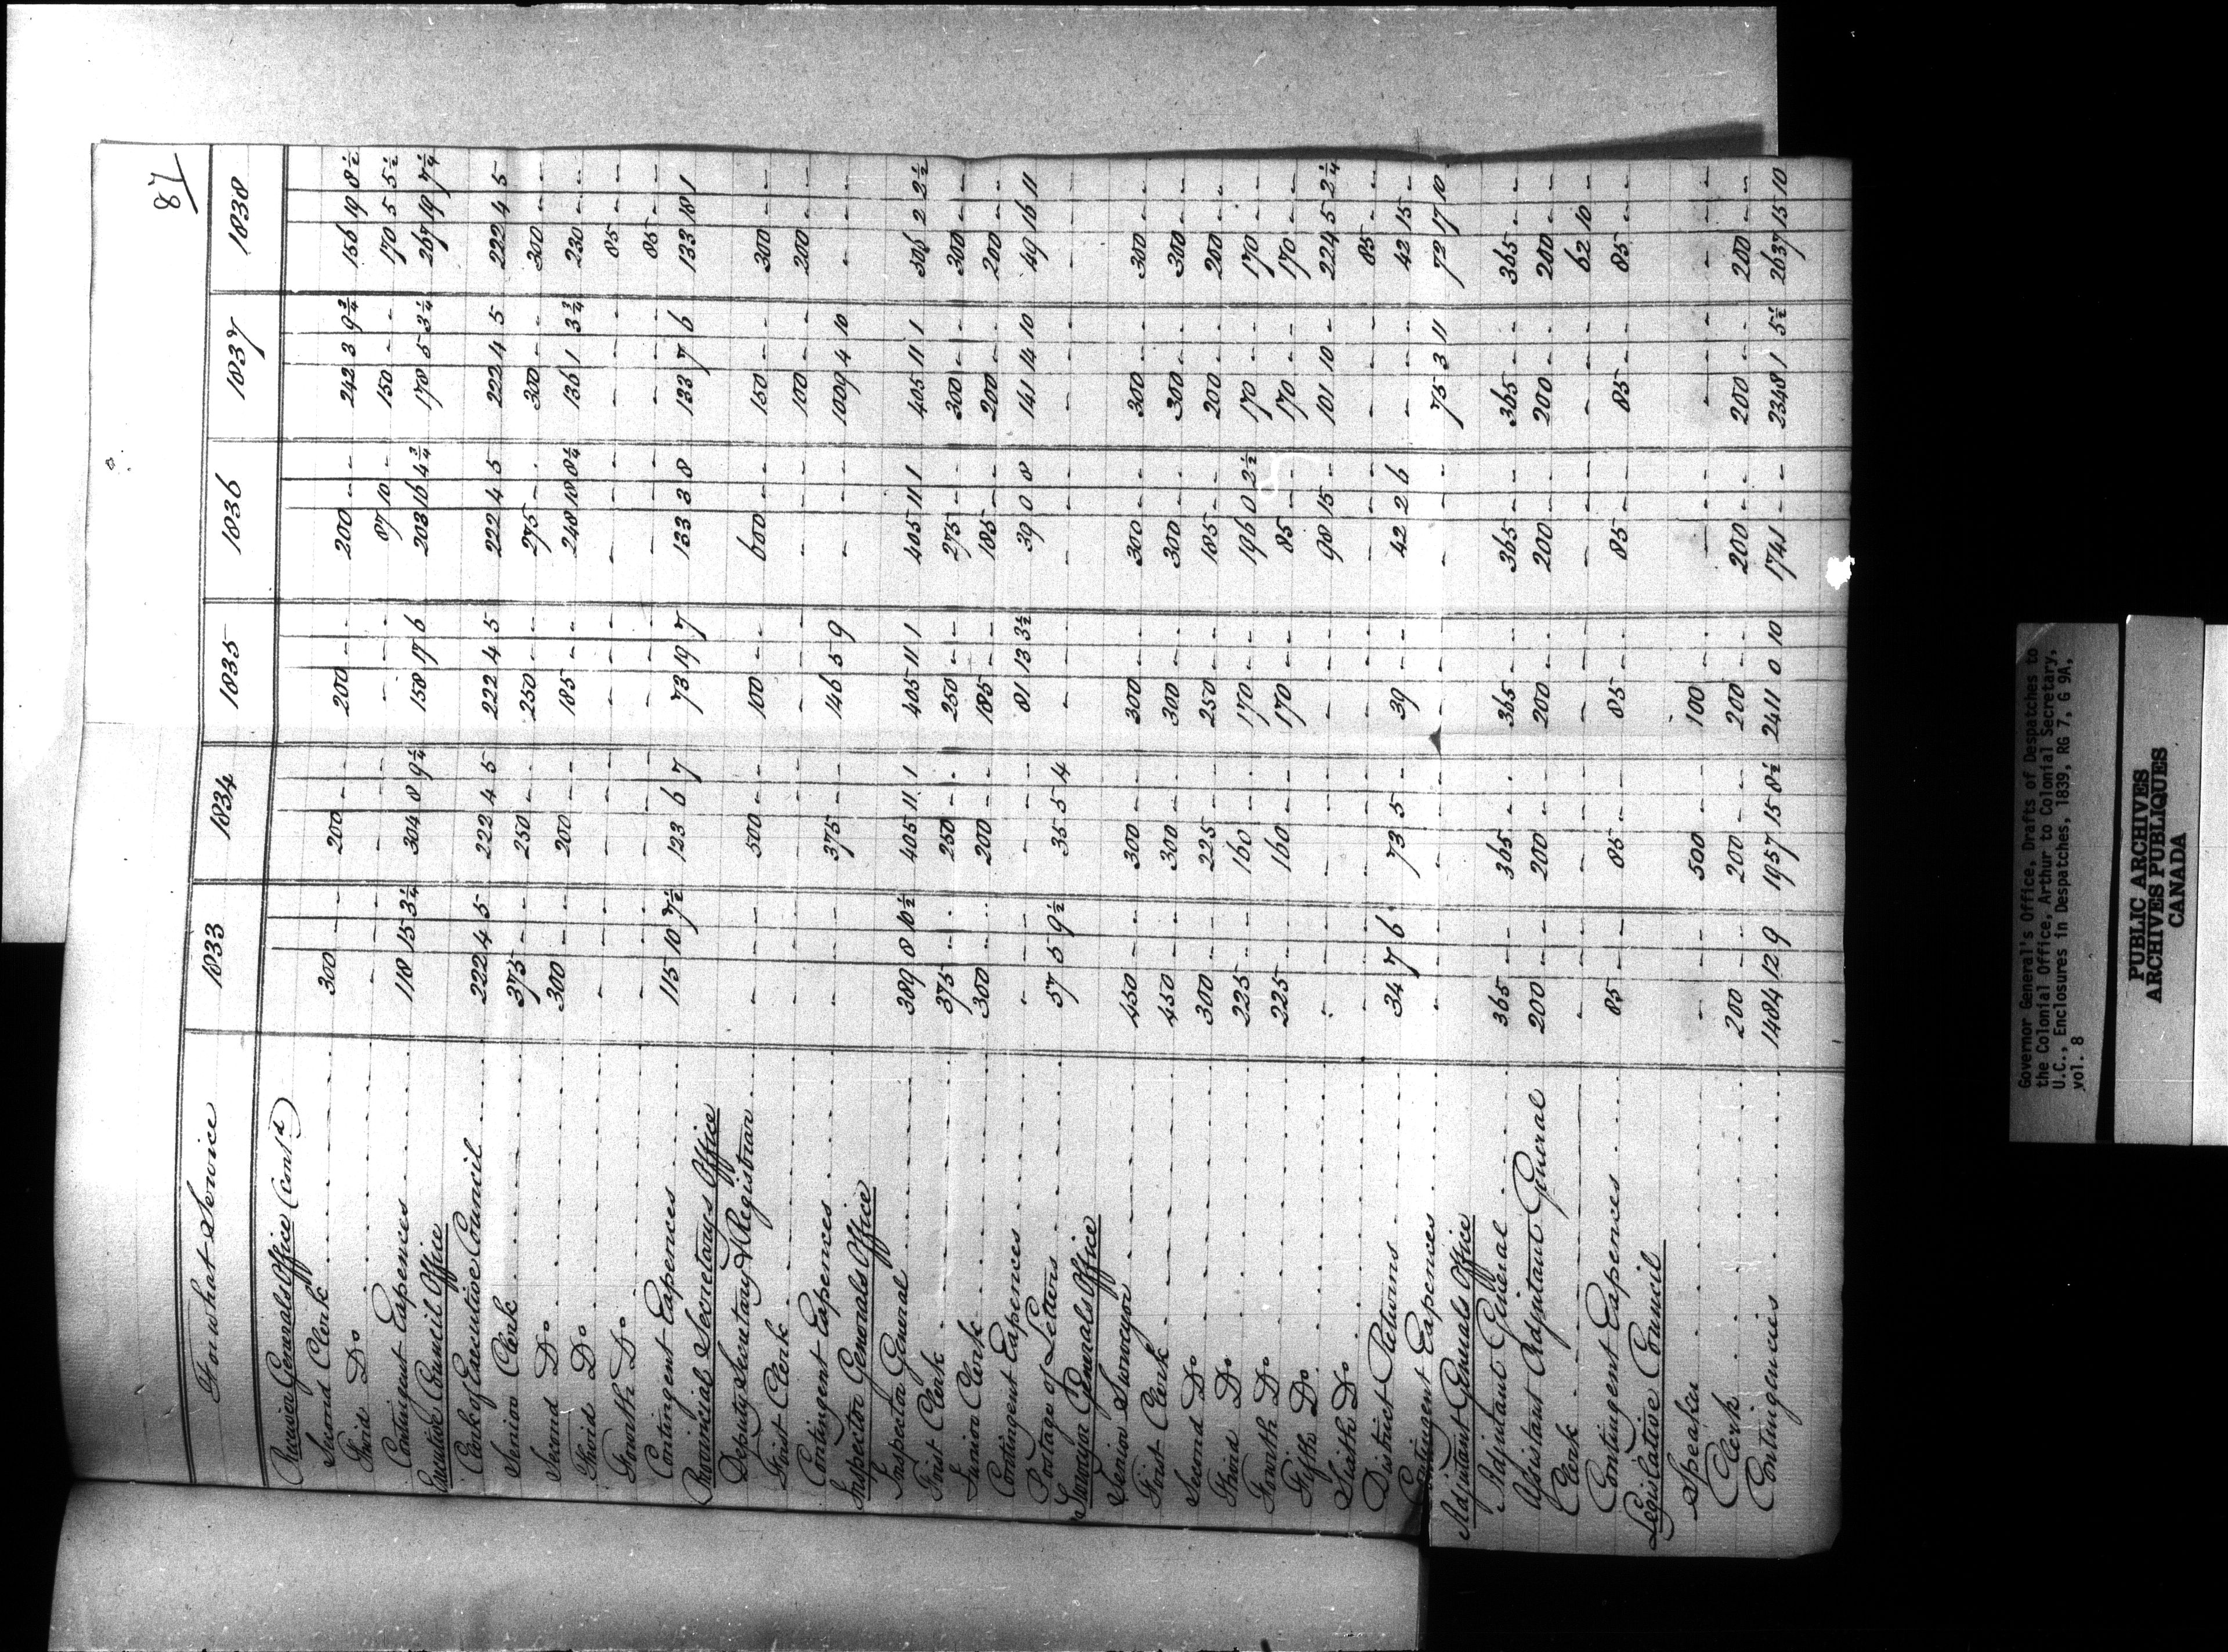 87
For what Service 1833 1834 1835 1836 1837 1838
Receiver Generals Office (Contd)
Second Clerk 300 - - 200 - - 200 - - 200 - - 242 3 9¾ 156 19 8½
Third Do - - - - - - - - - 87 10 - 150 - - 170 5 5½
Contingent Expences 118 15 3¼ 304 8 9¼ 158 17 6 203 16 4¾ 178 5 3¼ 267 19 7¼
Executive Council Office
Clerk of Executive Council 222 4 5 222 4 5 222 4 5 222 4 5 222 4 5 222 4 5
Senior Clerk 375 - - 250 - - 250 - - 275 - - 300 - - 300 - -
Second Do 300 - - 200 - - 185 - - 248 18 8¼ 136 1 3¾ 230 - -
Third Do - - - - - - - - - - - - - - - 85 - -
Fourth Do - - - - - - - - - - - - - - - 85 - -
Contingent Expences 115 10 7½ 123 6 7 73 19 7 133 3 8 133 7 6 133 18 1
Provincial Secretarys Office
Deputy Secretary & Registrar - - - 500 - - 100 - - 600 - - 150 - - 300 - -
First Clerk - - - - - - - - - - - - 100 - - 200 - -
Contingent Expences - - - 375 - - 146 5 9 - - - 1009 4 10 - - -
Inspector Generals Office
Inspector General 389 8 10½ 405 11 1 405 11 1 405 11 1 405 11 1 506 2 2½
First Clerk 375 - - 250 - - 250 - - 275 - - 300 - - 300 - -
Junior Clerk 300 - - 200 - - 185 - - 185 - - 200 - - 200 - -
Contingent Expences - - - - - - 81 13 3½ 39 0 8 141 14 10 49 16 11
Postage of Letters 57 5 9½ 35 5 4 - - - - - - - - - - - -
Surveyor Generals Office
Senior Surveyor 450 - - 300 - - 300 - - 300 - - 300 - - 300 - -
First Clerk 450 - - 300 - - 300 - - 300 - - 300 - - 300 - -
Second Do 300 - - 225 - - 250 - - 185 - - 200 - - 200 - -
Third Do 225 - - 160 - - 170 - - 196 0 2½ 170 - - 170 - -
Fourth Do 225 - - 160 - - 170 - - 85 - - 170 - - 170 - -
Fifth Do - - - - - - - - - 98 15 - 101 10 - 224 5 2¼
Sixth Do - - - - - - - - - - - - - - - 85 - -
District Returns 34 7 6 73 5 - 39 - - 42 2 6 - - - 42 15 -
Contingent Expences - - - - - - - - - - - - 75 3 11 72 17 10
Adjutant Generals Office
Adjutant General 365 - - 365 - - 365 - - 365 - - 365 - - 365 - -
Assistant Adjutant General 200 - - 200 - - 200 - - 200 - - 200 - - 200 - -
Clerk - - - - - - - - - - - - - - - 62 10 -
Contingent Expences 85 - - 85 - - 85 - - 85 - - 85 - - 85 - -
Legislative Council
Speaker - - - 500 - - 100 - - - - - - - - - - -
Clerk 200 - - 200 - - 200 - - 200 - - 200 - - 200 - -
Contingencies 1484 12 9 1957 15 8½ 2411 0 10 1741 - - 2348 1 5½ 2637 15 10
Governor General's Office, Drafts of Despatches to
the Colonial Office, Arthur to Colonial Secretary,
U.C., Enclosures in Despatches, 1839, RG 7, G 9A,
vol. 8
PUBLIC ARCHIVES
ARCHIVES PUBLIQUES
CANADA